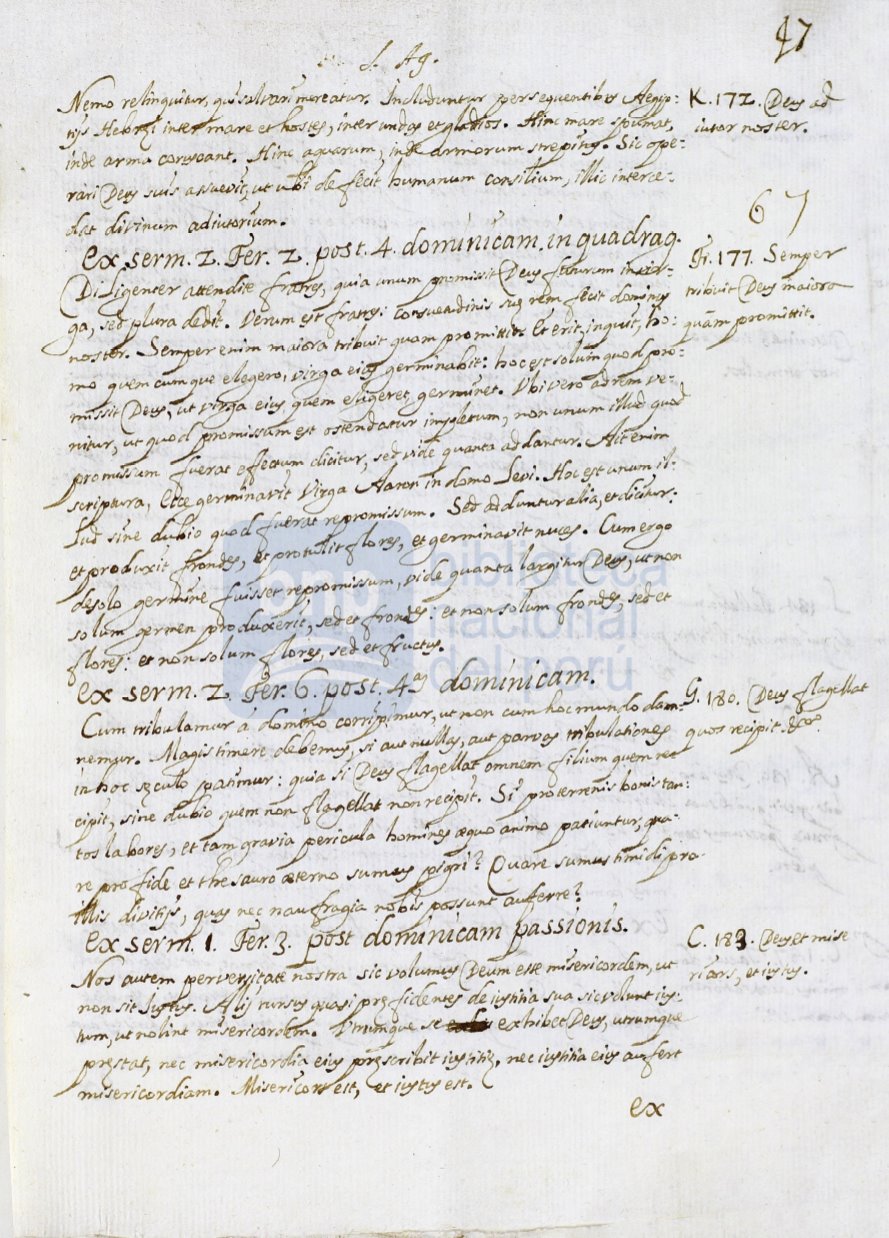 S. Ag.
47
Nemo relinquitur, qui salvari mereatur. Includuntur persequentibus Aegip-
tijs Hebręi inter mare et hostes, inter undas et gladios. Hinc mare spumat,
inde arma coruscant. Hinc aquarum, inde armorum strepitus. Sic ope-
rari Deus suis assuevit, ut ubi defecit humanum consilium, illic interce-
dat divinum adiutorium.
K. 172. Deus ad
iutor noster.
67
ex serm. 2. Fer. 2. post. 4. dominicam in quadrag.
Diligenter attendite fratres, quia unum promissit Deus futurum in vir-
ga, sed plura dedit. Verum est fratres: consuetudinis suę rem fecit dominus
noster. Semper enim maiora tribuit quam promittit. Et erit, inquit, ho-
mo quem cumque elegero, virga eius germinabit: hoc est solum quod pro-
missit Deus, ut virga eius quem eligeret, germinet. Ubi vero ad rem ve-
nitur, ut quod promissum est ostendatur impletum, non unum illud quod
promissum fuerat effectum dicitur, sed vide quanta addantur. Ait enim
scriptura, Ecce germinavit Virga Aaron in domo Levi. Hoc est unum il-
lud sine dubio quod fuerat repromissum. Sed adduntur alia, et dicitur:
et produxit frondes, et protulit flores, et germinavit nuces. Cum ergo
de solo germine fuisset repromissum, vide quanta largitur Deus, ut non
solum germen produxerit, sed et frondes: et non solum frondes, sed et
flores: et non solum flores, sed et fructus.
Fi. 177. Semper
tribuit Deus maiora
quàm promittit.
ex serm. 2. Fer. 6. post. 4am dominicam.
Cum tribulamur à domino corripimur, ut non cum hoc mundo dam-
nemur. Magis timere debemus, si aut nullas, aut parvas tribulationes
in hoc sęculo patimur: quia si Deus flagellat omnem filium quem rec
cipit, sine dubio quem non flagellat non recipit. Si pro terrenis bonis tan-
tos labores, et tam gravia pericula homines æquo animo patiuntur, qua-
re pro fide et thesauro æterno sumus pigri? Quare sumus timidi pro
illis divitijs, quas nec naufragia nobis possunt auferre?
G. 180. Deus flagellat
quos recipit &c.
ex serm. 1. Fer. 3. post dominicam passionis.
Nos autem perversitate nostra sic volumus Deum esse misericordem, ut
non sit Iustus. Alij rursus quasi pręfidentes de iustitia sua sic volunt ius-
tum, ut nolint misericordem. Utrumque se exhibet Deus, utrumque
pręstat, nec misericordia eius pręscribit iustitię, nec iustitia eius aufert
misericordiam. Misericors est, et iustus est.
C. 183. Deus et mise
ricors, et iustus.
ex
bnp biblioteca
nacional
del perú